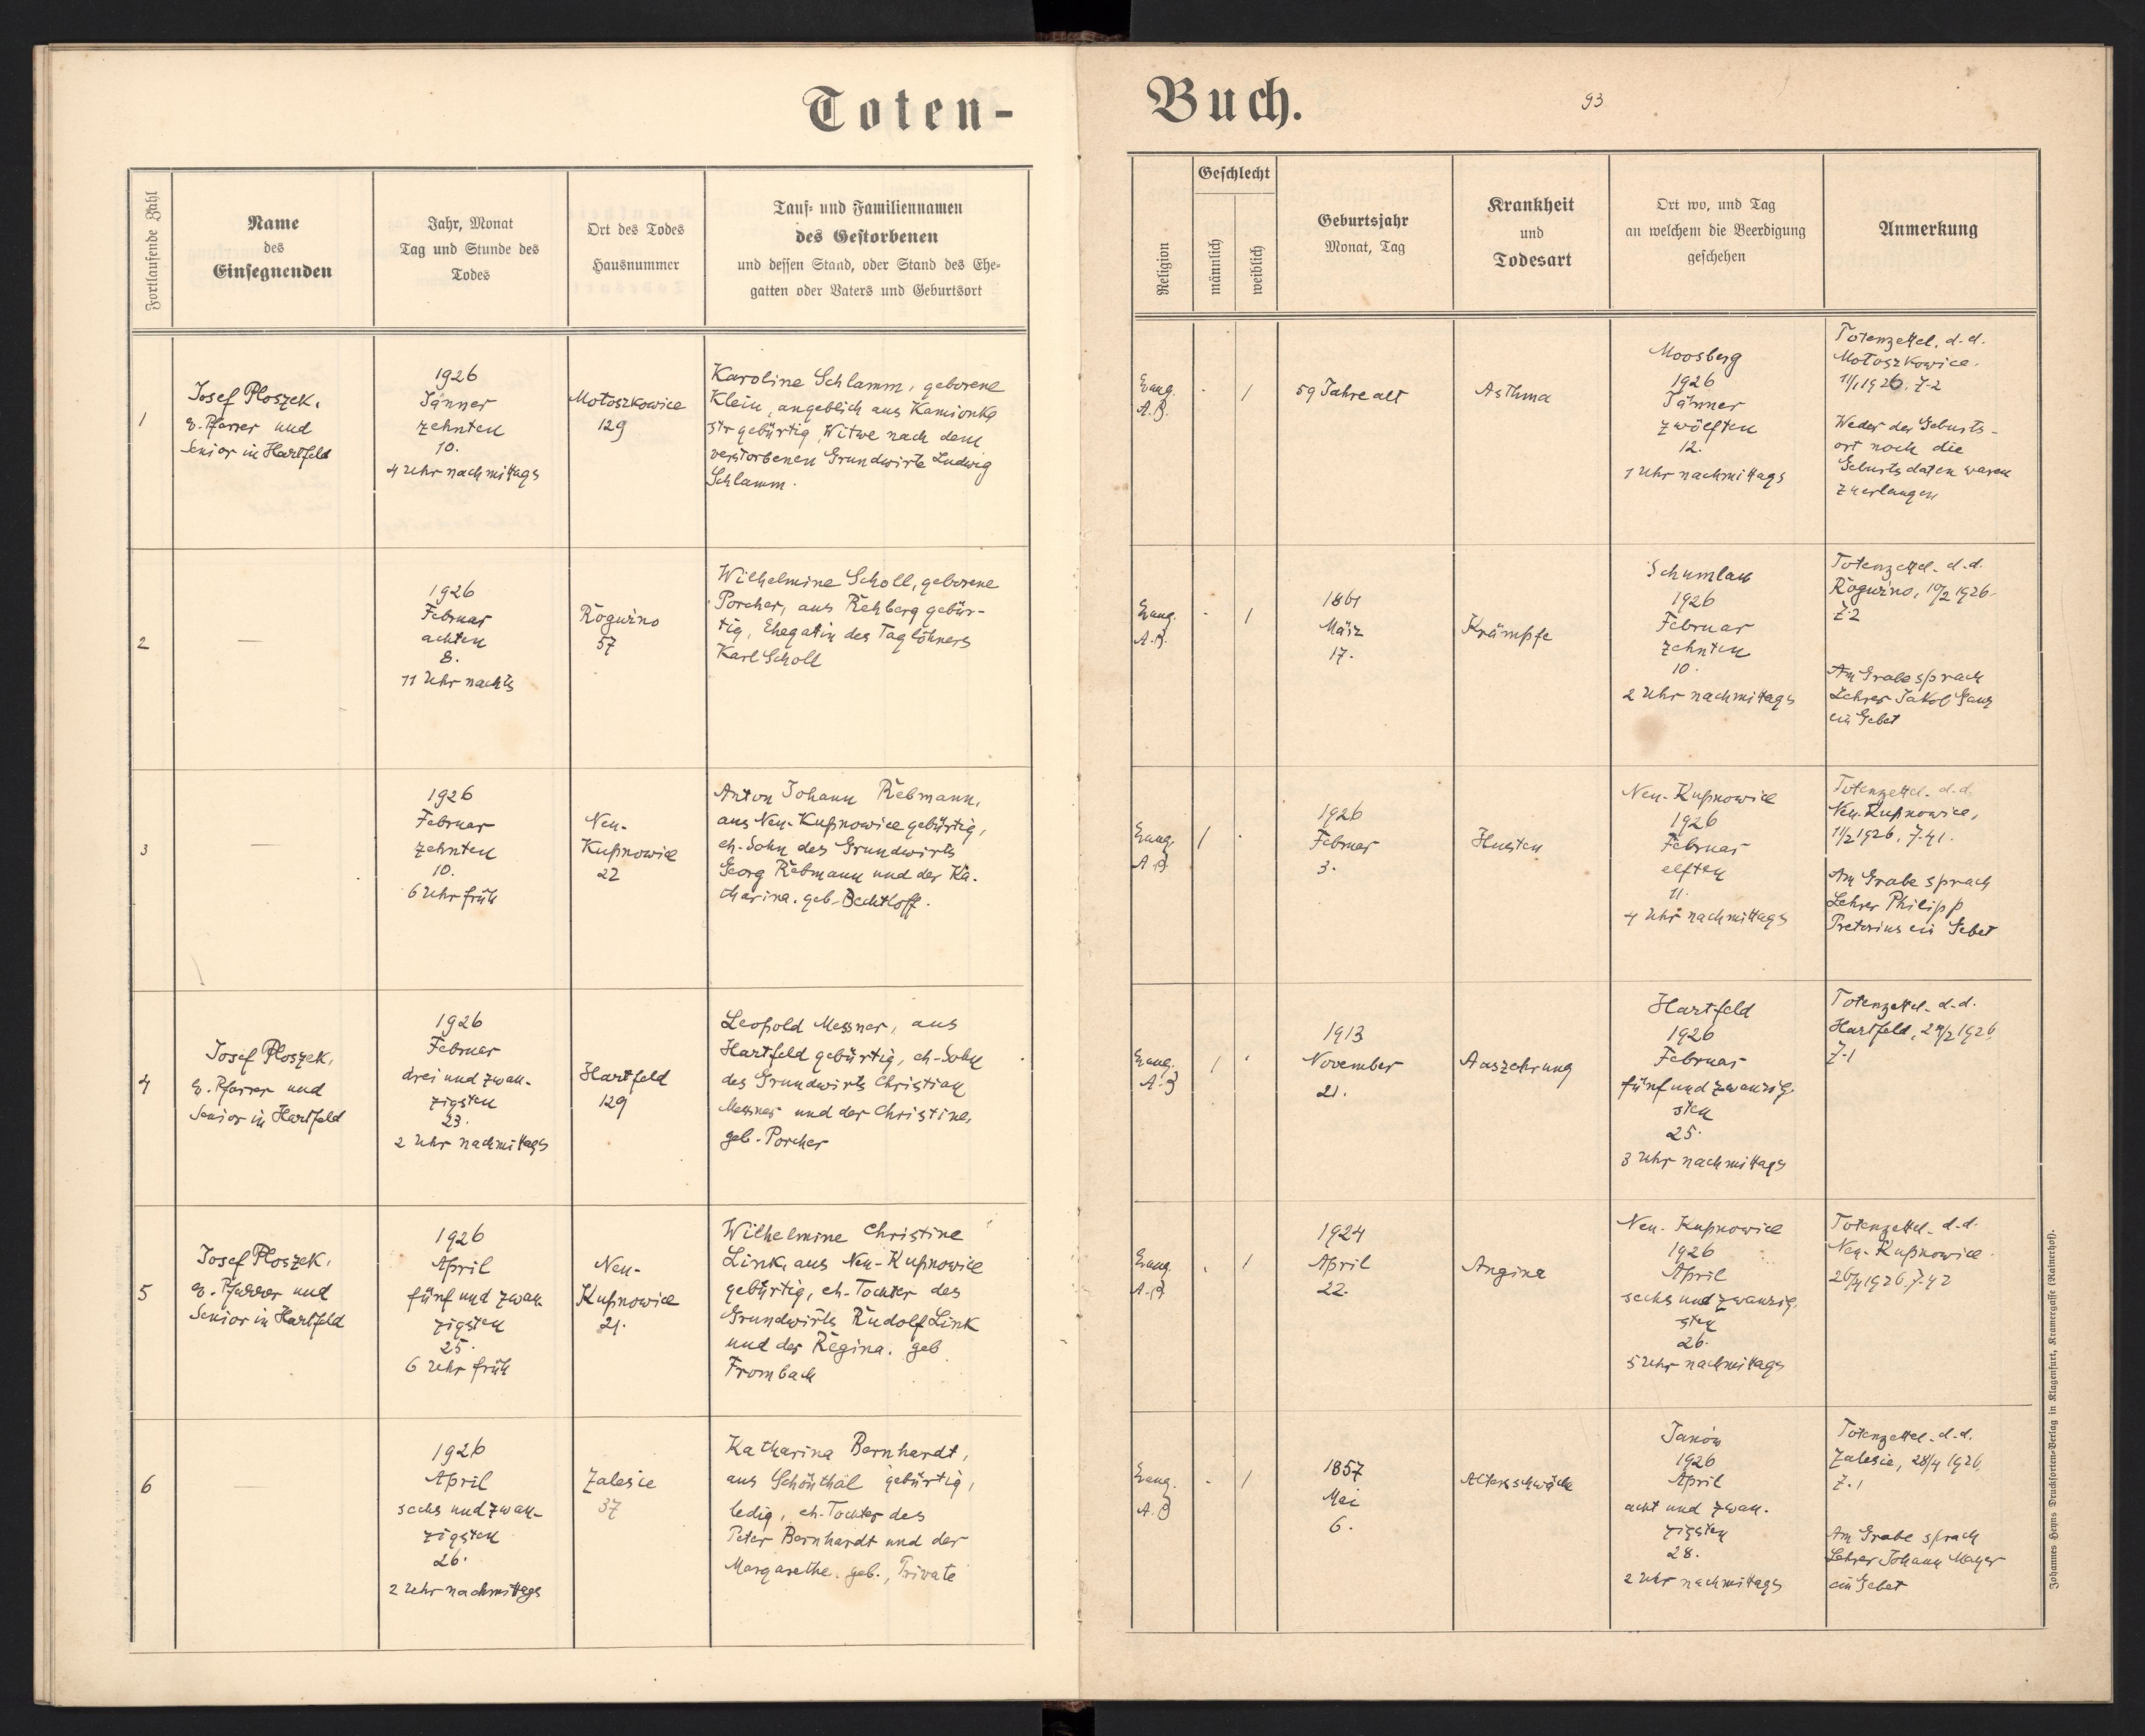 Toten-
Buch.
93
Fortlaufende Zahl
Name
des
Einsegnenden
Jahr, Monat
Tag und Stunde des
Todes
Ort des Todes
Hausnummer
Tauf- und Familiennamen
des Gestorbenen
und dessen Stand, oder Stand des Ehe-
gatten oder Vaters und Geburtsort
Religion
Geschlecht
männlich
weiblich
Geburtsjahr
Monat, Tag
Krankheit
und
Todesart
Ort wo, und Tag
an welchem die Beerdigung
geschehen
Anmerkung
1
Josef Ploszek,
e. Pfarrer und
Senior in Hartfeld
1926
Jänner
zehnten
10.
4 Uhr nachmittags
Motoszkowice
129
Karoline Schlamm, geborene
Klein, angeblich aus Kamionka
str gebürtig, Witwe nach dem
verstorbenen Grundwirte Ludwig
Schlamm.
Evang.
A.B.
- /
59 Jahre alt
Asthma
Moosberg
1926
Jänner
zwölften
12.
1 Uhr nachmittags
Totenzettel. d.d.
Motoszkowice.
11/1 1926. Z-2
Weder der Geburts-
ort noch die
Geburtsdaten waren
zu erlangen
2
—
1926
Februar
achten
8.
11 Uhr nachts
Rogużno
57
Wilhelmine Scholl, geborene
Porcher, aus Rehberg gebür-
tig, Ehegatin des Taglöhners
Karl Scholl
Evang.
A.B.
- /
1861
März
17.
Krämpfe
Schumlau
1926
Februar
zehnten
10.
2 Uhr nachmittags
Totenzettel. d.d.
Rogużno, 10/2 1926.
Z.2
Am Grabe sprach
Lehrer Jakob Ganz
ein Gebet
3
—
1926
Februar
zehnten
10.
6 Uhr früh
Neu-
Kupnowice
22
Anton Johann Rebmann,
aus Neu-Kupnowice gebürtig,
eh-Sohn des Grundwirts
Georg Rebmann und der Ka-
tharina. geb-Bechtloff.
Evang.
A.B.
/ -
1926
Februar
3.
Husten
Neu-Kupnowice
1926
Februar
elften
11.
4 Uhr nachmittags
Totenzettel. d.d.
Neu-Kupnowice,
11/2 1926. Z.41.
Am Grabe sprach
Lehrer Philipp
Pretorius ein Gebet
4
Josef Ploszek,
e. Pfarrer und
Senior in Hartfeld
1926
Februar
drei und zwan-
zigsten
23.
2 Uhr nachmittags
Hartfeld
129
Leopold Messner, aus
Hartfeld gebürtig, eh-Sohn
des Grundwirts Christian
Messner und der Christine,
geb-Porcher
Evang.
A.B
/ -
1913
November
21.
Auszehrung
Hartfeld
1926
Februar
fünf und zwanzig-
sten
25.
3 Uhr nachmittags
Totenzettel. d.d.
Hartfeld, /2 1926
Z-1
5
Josef Ploszek,
e. Pfarrer und
Senior in Hartfeld
1926
April
fünf und zwan-
zigsten
25.
6 Uhr früh
Neu-
Kupnowice
21.
Wilhelmine Christine
Link, aus Neu-Kupnowice
gebürtig, eh-Tochter des
Grundwirts Rudolf Link
und der Regina. geb
Frombach
Evang.
A.B.
- /
1924
April
22.
Angina
Neu-Kupnowice
1926
April
sechs und zwanzig-
sten
26.
5 Uhr nachmittags
Totenzettel. d.d.
Neu-Kupnowice.
26/4 1926, Z.42
6
—
1926
April
sechs und zwan-
zigsten
26.
2 Uhr nachmittags
Zalesie
37
Katharina Bernhardt,
aus Schönthal gebürtig,
ledig, eh-Tochter des
Peter Bernhardt und der
Margarethe. geb., Private
Evang.
A.B
- /
1857
Mai
6.
Altersschwäche
Janów
1926
April
acht und zwan-
zigsten
28.
2 Uhr nachmittags
Totenzettel-d.d.
Zalesie, 28/4 1926
Z.1
Am Grabe sprach
Lehrer Johann Mayer
ein Gebet
Johannes Heyns Drucksorten-Verlag in Klagenfurt, Kramergasse (Rainerhof).